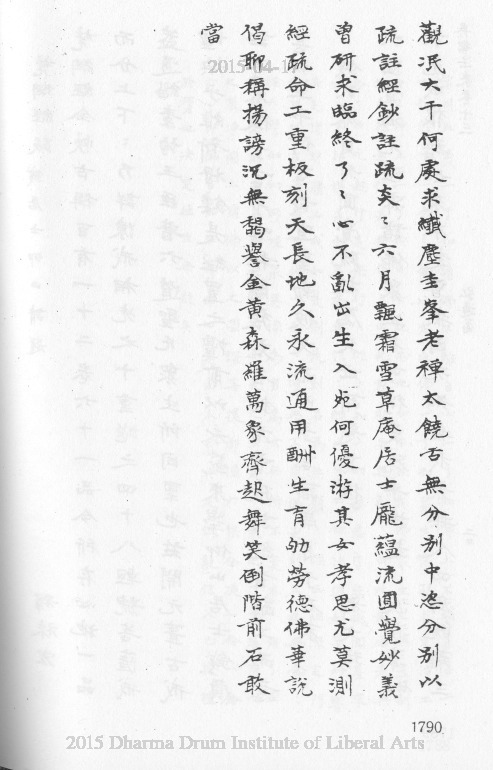 觀泯大千何處求纖塵圭峯老禪太饒舌無分別中恣分別以
疏註經鈔註疏炎〻六月飄霜雪草庵居士龐蘊流圓覺妙義
曾研求臨終了〻心不亂出生入死何優游其女孝思尤莫測
經疏命工重板刻天長地久永流通用酬生育劬勞德佛華說
偈聊稱揚謗況無竭譽金黃森羅萬象齊起舞笑倒階前石敢
當
2015-04-17
1790
2015 Dharma Drum Institute of Liberal Arts